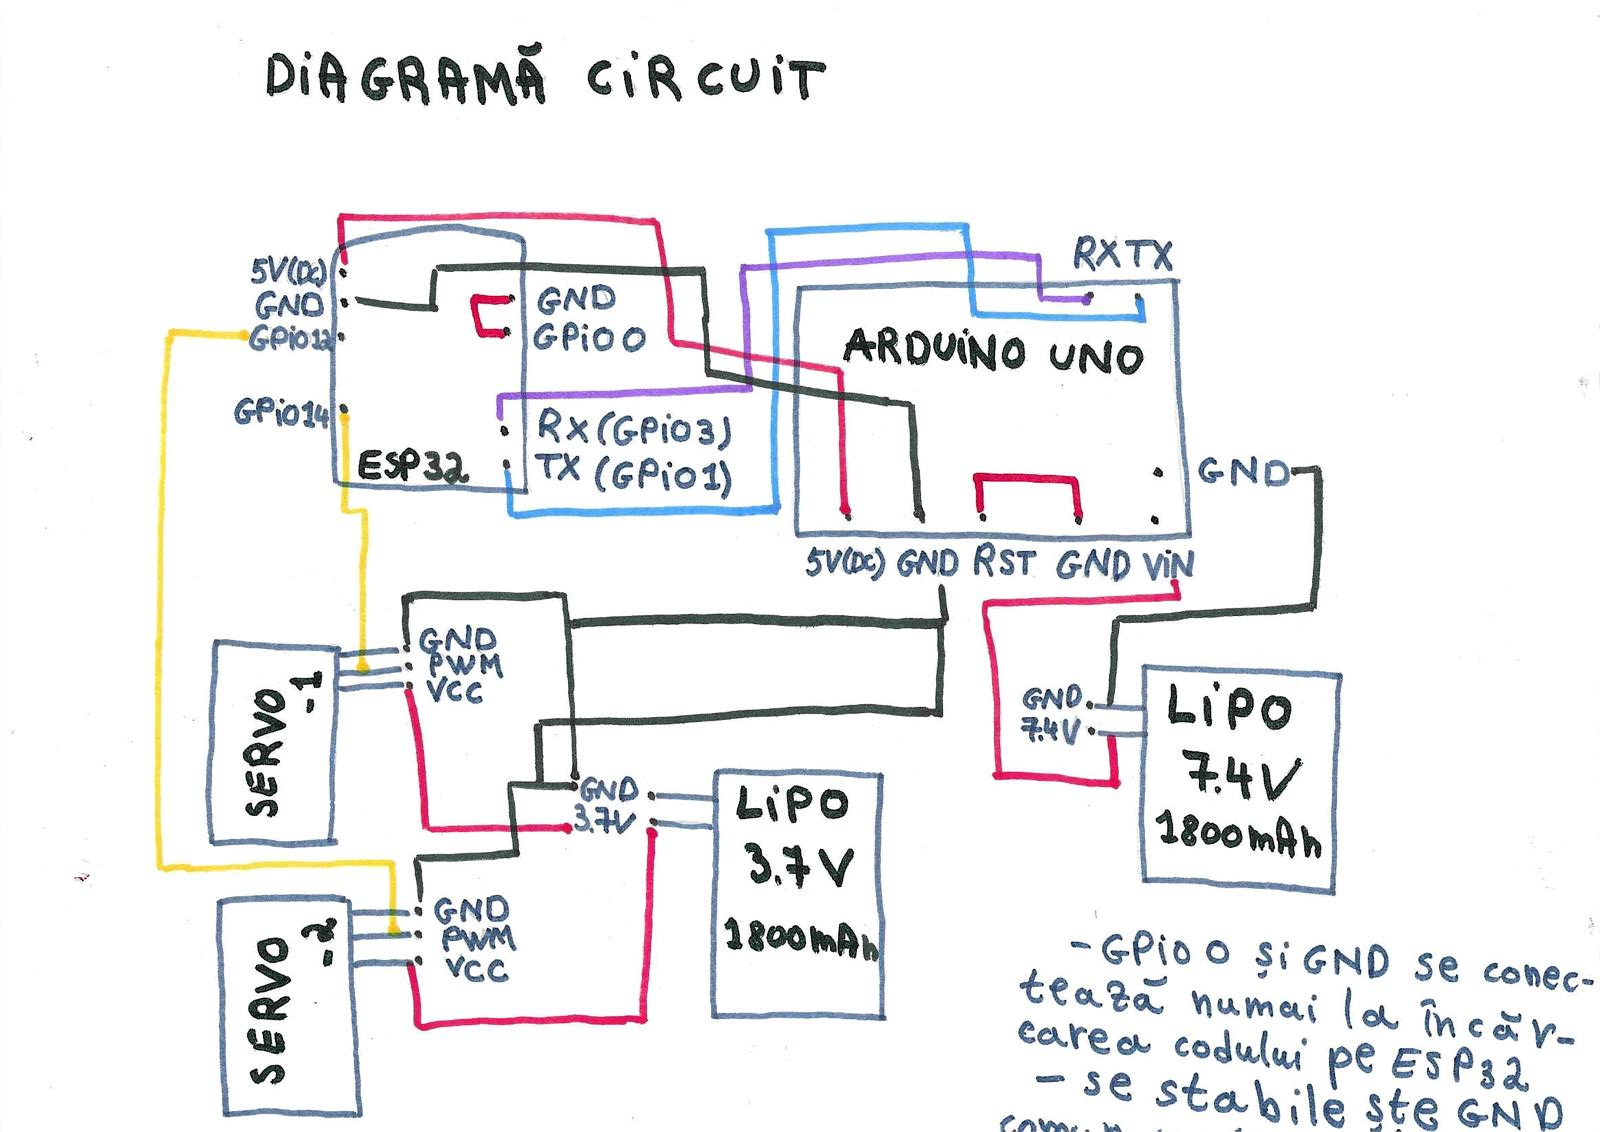 DiAGRAMĂ CiRCUiT
5V(DC)
GND
GPiO12
GPiO14
ESP32
GND
GPiO 0
RX(GPiO3)
TX (GPiO1)
RX TX
ARDUiNO UNO
GND
5V(DC) GND RST GND ViN
GND
PWM
VCC
SERVO -1
GND
7.4V
LiPO
7.4V
1800mAh
GND
3.7V
LiPO
3.7V
1800mAh
GND
PWM
VCC
SERVO -2
- GPiO 0 și GND se conec-
tează numai la încăr-
carea codului pe ESP32
- se stabilește GND
comun